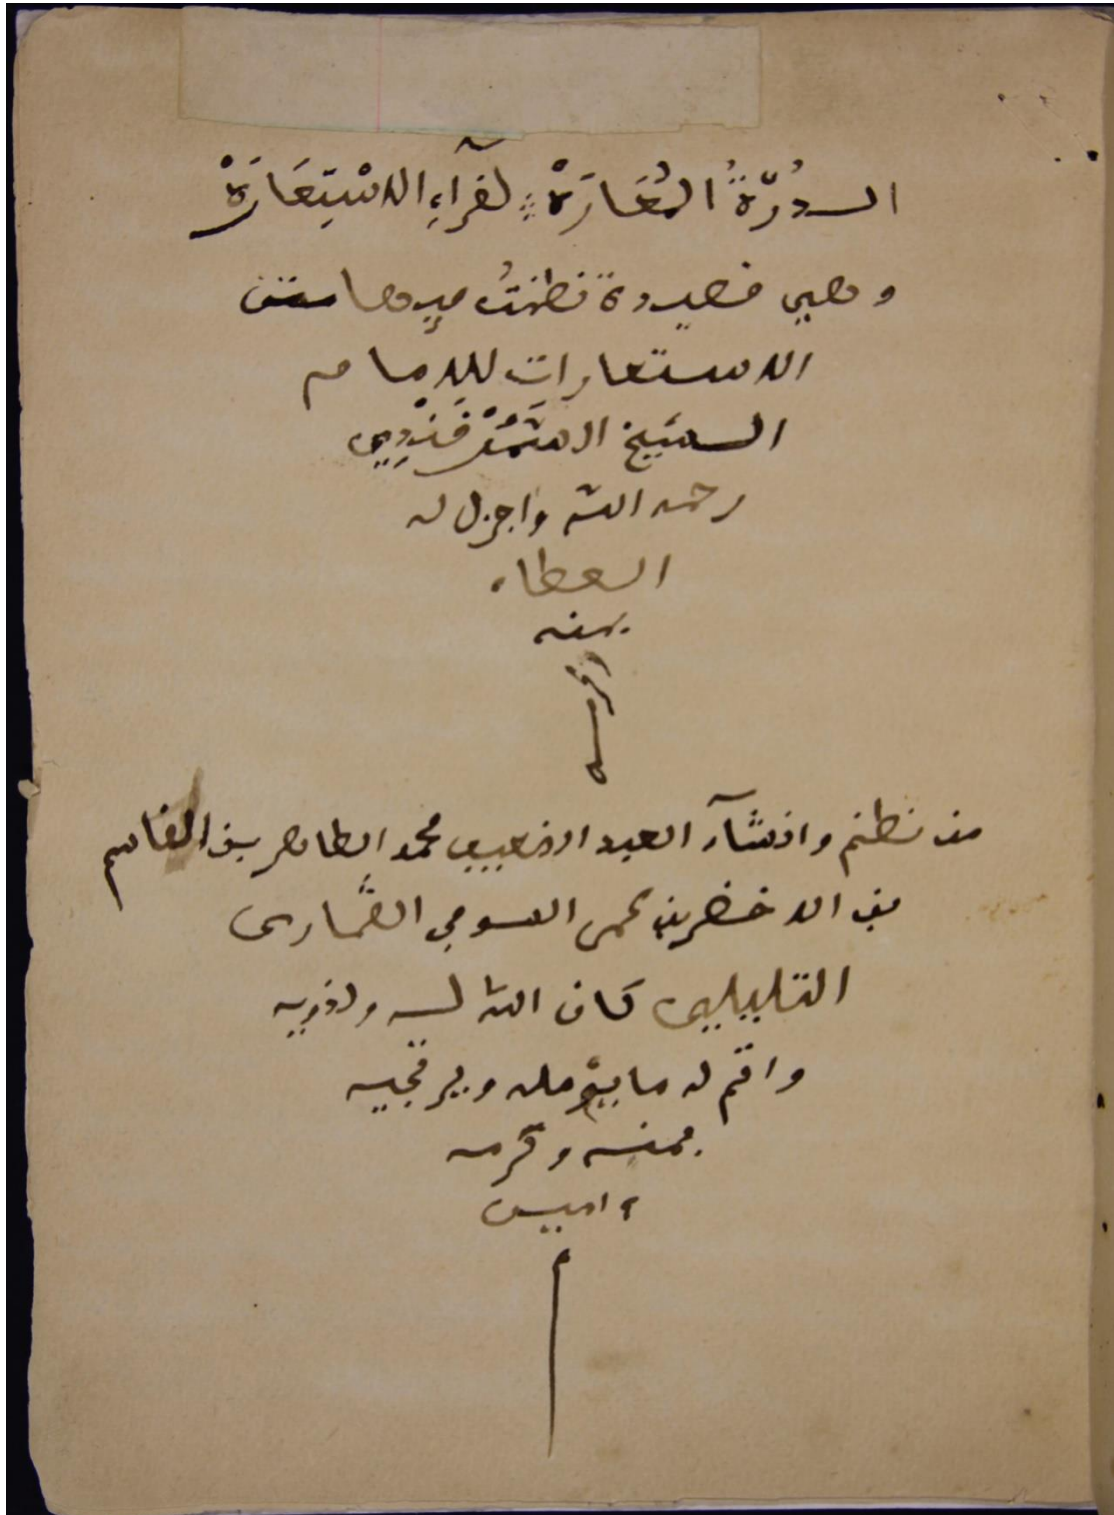 الدُّرَّةُ المُعَارَةْ لقرآءِ الاسْتِعَارَةْ
وهي قصيدة نظمتُ فيها متن
الاستعارات للإمام
الشيخ السَّمَرْقَنْدِي
رحمه الله واجزل له
العطاء
بمنه
من نظم وانشآء العبد الضعيف محمد الطاهر بن القاسم
بن الاخضر بن عمر السوفي القماري
التليلي كان الله له ولذويه
واتم له ما يؤمله ويرتجيه
بمنه وكرمه
ءامين